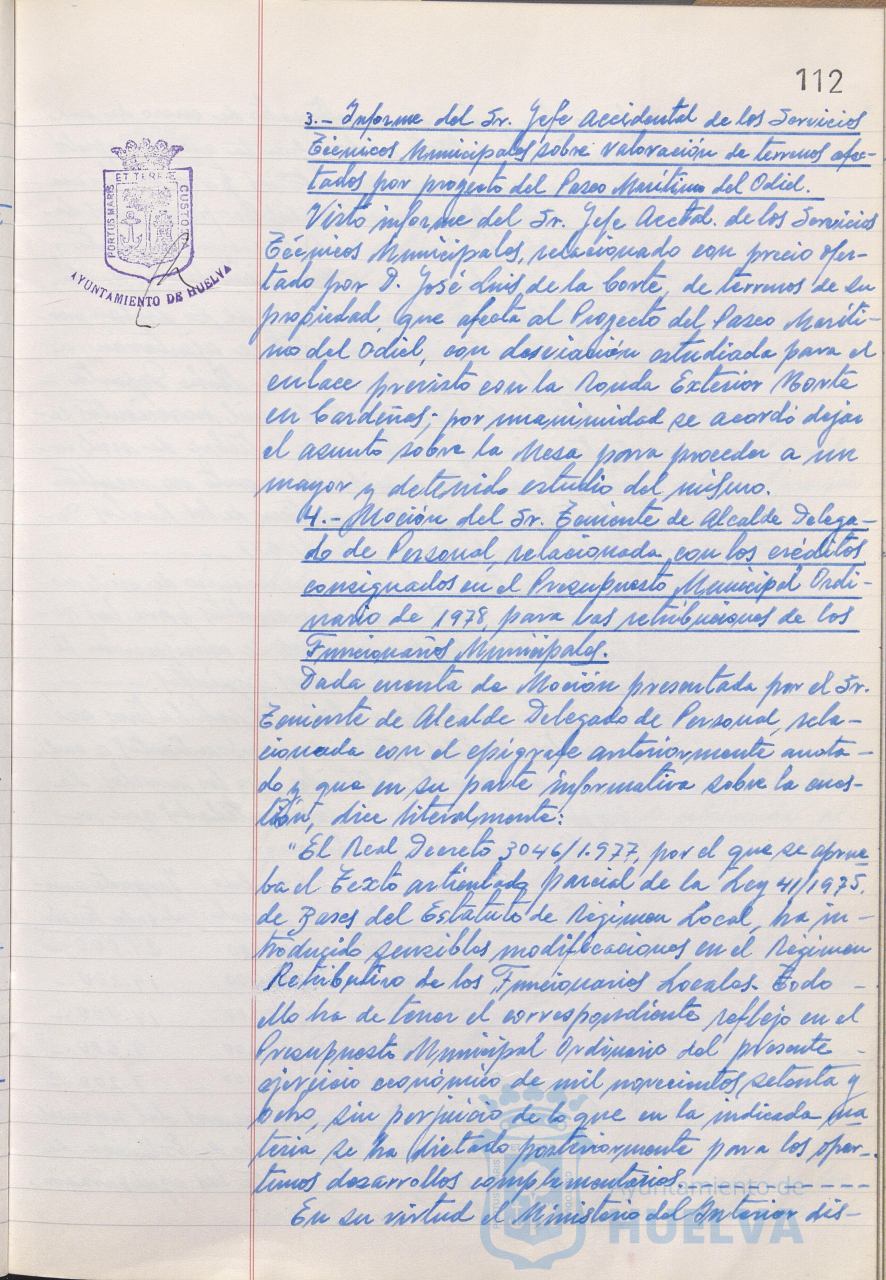 112
3.- Informe del Sr. Jefe Accidental de los Servicios
Técnicos Municipales sobre valoración de terrenos afec-
tados por proyecto del Paseo Marítimo del Odiel.
Visto informe del Sr. Jefe Acctal. de los Servicios
Técnicos Municipales, relacionado con precio ofer-
tado por D. José Luis de la Corte, de terrenos de su
propiedad, que afecta al Proyecto del Paseo Maríti-
mo del Odiel, con desviación estudiada para el
enlace previsto con la Ronda Exterior Norte
en Cardeñas; por unanimidad se acordó dejar
el asunto sobre la Mesa para proceder a un
mayor y detenido estudio del mismo.
4.- Moción del Sr. Teniente de Alcalde Delega-
do de Personal, relacionada con los créditos
consignados en el Presupuesto Municipal Ordi-
nario de 1978, para las retribuciones de los
Funcionarios Municipales.
Dada cuenta de Moción presentada por el Sr.
Teniente de Alcalde Delegado de Personal, rela-
cionada con el epígrafe anteriormente anota-
do y que en su parte informativa sobre la cues-
tión, dice literalmente:
"El Real Decreto 3046/1.977, por el que se aprue
ba el Texto articulado parcial de la Ley 41/1975,
de Bases del Estatuto de Régimen Local, ha in-
troducido sensibles modificaciones en el Régimen
Retributivo de los Funcionarios Locales. Todo -
ello ha de tener el correspondiente reflejo en el
Presupuesto Municipal Ordinario del presente -
ejercicio económico de mil novecientos setenta y
ocho, sin perjuicio de lo que en la indicada ma
teria se ha dictado posteriormente para los opor-
tunos desarrollos complementarios. - - - - - - -
En su virtud el Ministerio del Interior dis-
PORTUS MARIS ET TERRÆ CUSTODIA
AYUNTAMIENTO DE HUELVA
Ayuntamiento de
HUELVA